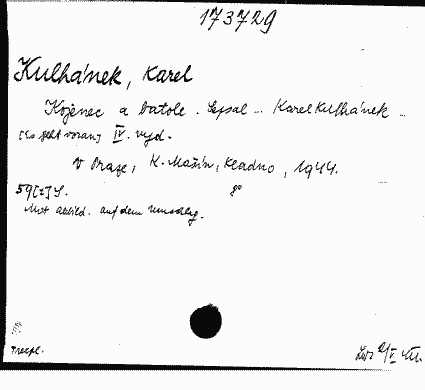 173729
Kulhánek, Karel
Kojenec a batole. Sepsal ... Karel Kulhánek ...
IV. vyd.
V Praze, K. Mašín, Kladno, 1944.
59[2] S. 8°
Mit abbild. auf dem Umschlag.